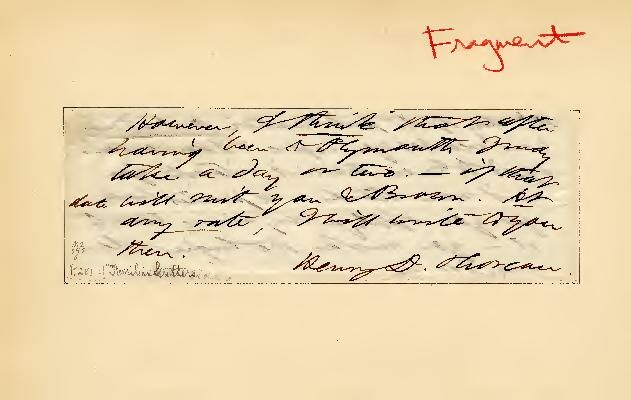 Fragment
However, I think that after
having been to Plymouth I may
take a day or two. — if that
date will suit you & Brown. At
any rate, I will write to you
then.
Henry D. Thoreau
P. 281 of "Familiar Letters